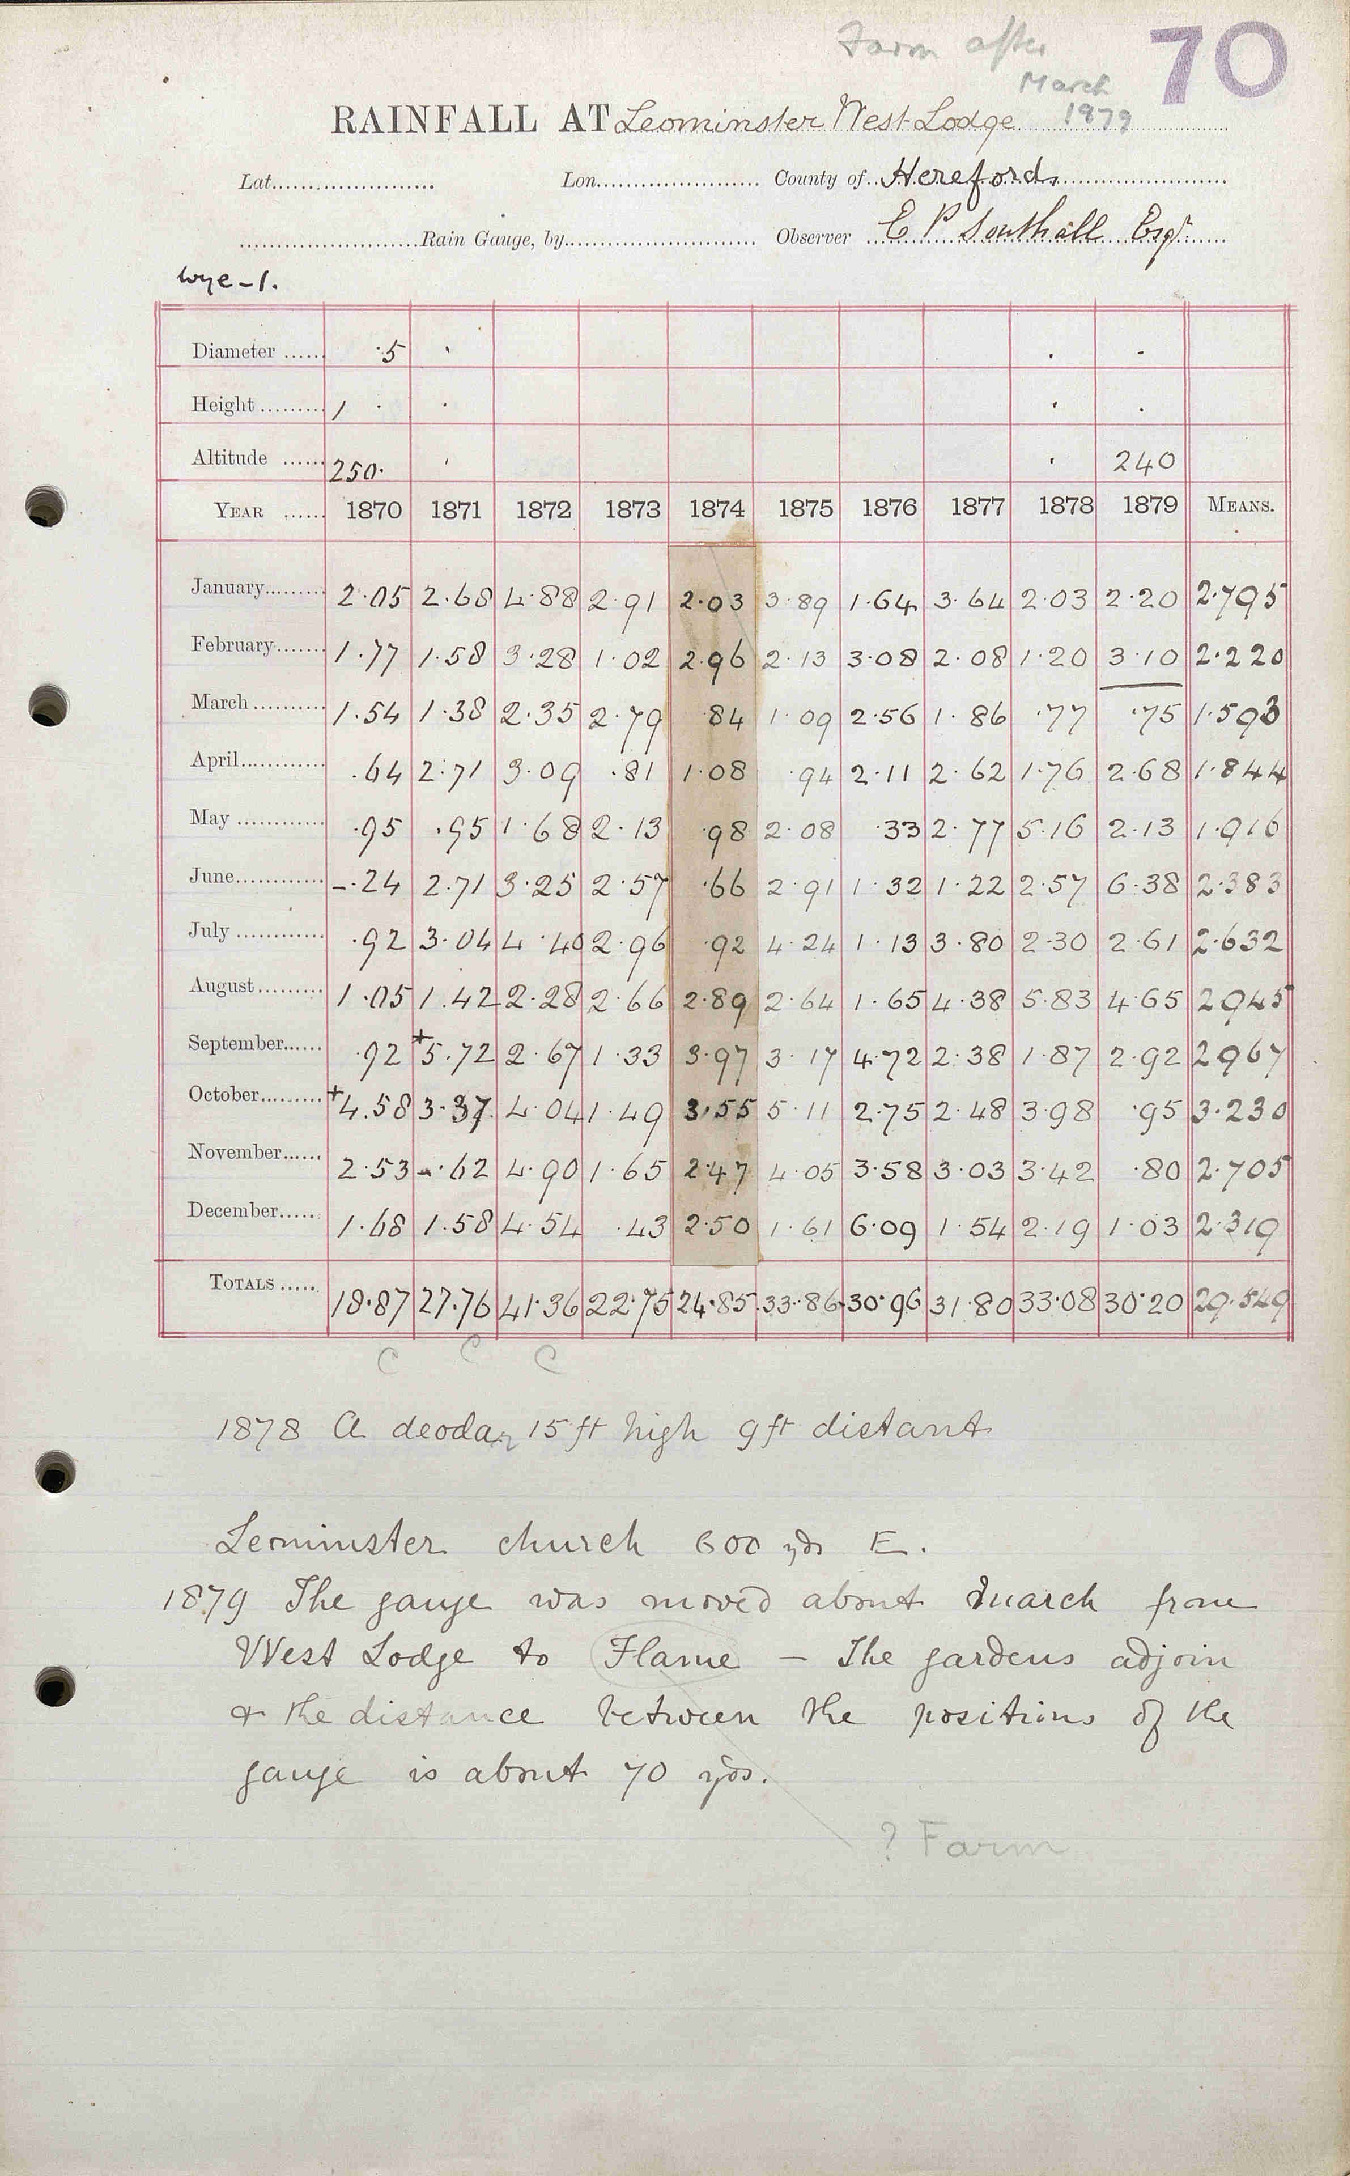 Farm after 70
March
RAINFALL AT Leominster West Lodge 1879
Lat. Lon. County of Herefords
Rain Gauge, by Observer E P Southall Esqr
Wye-1.
Diameter ...... ·5 ·  · ·
Height ......... 1 · ·  · ·
Altitude ...... 250· ·  · 240
YEAR ...... 1870 1871 1872 1873 1874 1875 1876 1877 1878 1879 MEANS.
January......... 2·05 2·68 4·88 2·91 2·03 3·89 1·64 3·64 2·03 2·20 2·795
February....... 1·77 1·58 3·28 1·02 2·96 2·13 3·08 2·08 1·20 3·10 2·220
March .......... 1·54 1·38 2·35 2·79 ·84 1·09 2·56 1·86 ·77 ·75 1·593
April............ ·64 2·71 3·09 ·81 1·08 ·94 2·11 2·62 1·76 2·68 1·844
May ............ ·95 ·95 1·68 2·13 ·98 2·08 ·33 2·77 5·16 2·13 1·916
June............ -·24 2·71 3·25 2·57 ·66 2·91 1·32 1·22 2·57 6·38 2·383
July ............ ·92 3·04 4·40 2·96 ·92 4·24 1·13 3·80 2·30 2·61 2·632
August......... 1·05 1·42 2·28 2·66 2·89 2·64 1·65 4·38 5·83 4·65 2945
September...... ·92 +5·72 2·67 1·33 3·97 3·17 4·72 2·38 1·87 2·92 2967
October......... +4·58 3·37 4·04 1·49 3·55 5·11 2·75 2·48 3·98 ·95 3·230
November...... 2·53 -·62 4·90 1·65 2·47 4·05 3·58 3·03 3·42 ·80 2·705
December...... 1·68 1·58 4·54 ·43 2·50 1·61 6·09 1·54 2·19 1·03 2·319
TOTALS ..... 18·87 27·76 41·36 22·75 24·85 33·86 30·96 31·80 33·08 30·20 29·549
C C C
1878 A deodar 15 ft high 9 ft distant
Leominster church 600 yds E.
1879 The gauge was moved about March from
West Lodge to Flame – The gardens adjoin
& the distance between the positions of the
gauge is about 70 yds.
? Farm